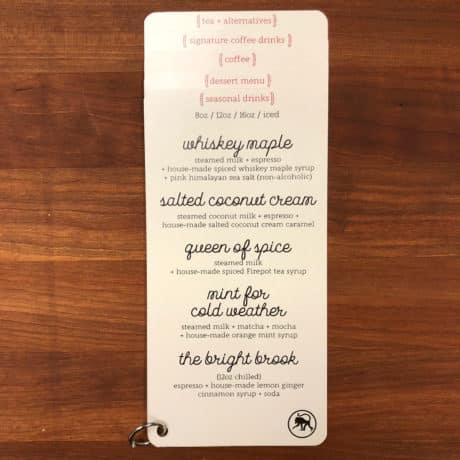 { tea + alternatives }
{ signature coffee drinks }
{ coffee }
{ dessert menu }
{ seasonal drinks }
8oz / 12oz / 16oz / iced
whiskey maple
steamed milk + espresso
+ house-made spiced whiskey maple syrup
+ pink himalayan sea salt (non-alcoholic)
salted coconut cream
steamed coconut milk + espresso +
house-made salted coconut cream caramel
queen of spice
steamed milk
+ house-made spiced Firepot tea syrup
mint for
cold weather
steamed milk + matcha + mocha
+ house-made orange mint syrup
the bright brook
(12oz chilled)
espresso + house-made lemon ginger
cinnamon syrup + soda